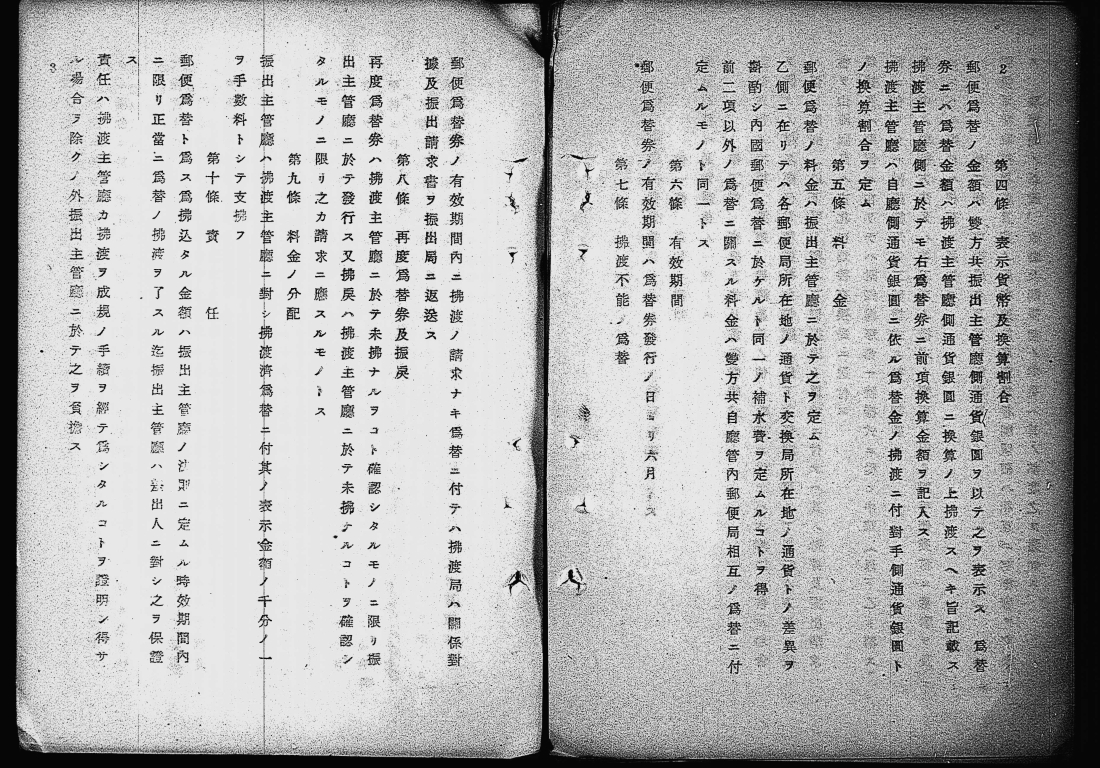 2
第四條 表示貨幣及換算割合
郵便爲替ノ金額ハ雙方共振出主管廳側通貨銀圓ヲ以テ之ヲ表示ス 爲替
券ニハ爲替金額ハ拂渡主管廳側通貨銀圓ニ換算ノ上拂渡スヘキ旨記載ス
拂渡主管廳側ニ於テモ右爲替券ニ前項換算金額ヲ記入ス
拂渡主管廳ハ自廳側通貨銀圓ニ依ル爲替金ノ拂渡ニ付對手側通貨銀圓ト
ノ換算割合ヲ定ム
第五條 料金
郵便爲替ノ料金ハ振出主管廳ニ於テ之ヲ定ム
乙側ニ在リテハ各郵便局所在地ノ通貨ト交換局所在地ノ通貨トノ差異ヲ
斟酌シ內國郵便爲替ニ於ケルト同一ノ補水費ヲ定ムルコトヲ得
前二項以外ノ爲替ニ關スル料金ハ雙方共自廳管內郵便局相互ノ爲替ニ付
定ムルモノト同一トス
第六條 有效期間
郵便爲替券ノ有效期間ハ爲替券發行ノ日ヨリ六月トス
第七條 拂渡不能ノ爲替
郵便爲替券ノ有效期間內ニ拂渡ノ請求ナキ爲替ニ付テハ拂渡局ハ關係對
據及振出請求書ヲ振出局ニ返送ス
第八條 再度爲替券及振戾
再度爲替券ハ拂渡主管廳ニ於テ未拂ナルヲコト確認シタルモノニ限リ振
出主管廳ニ於テ發行ス又拂戾ハ拂渡主管廳ニ於テ未拂ナルコトヲ確認シ
タルモノニ限リ之カ請求ニ應スルモノトス
第九條 料金ノ分配
振出主管廳ハ拂渡主管廳ニ對シ拂渡濟爲替ニ付其ノ表示金額ノ千分ノ一
ヲ手數料トシテ支拂フ
第十條 責任
郵便爲替ト爲ス爲拂込タル金額ハ振出主管廳ノ法則ニ定ムル時效期間內
ニ限リ正當ニ爲替ノ拂渡ヲ了スル迄振出主管廳ハ差出人ニ對シ之ヲ保證
ス
責任ハ拂渡主管廳カ拂渡ヲ成規ノ手續ヲ經テ爲シタルコトヲ證明シ得サ
ル場合ヲ除クノ外振出主管廳ニ於テ之ヲ負擔ス
3